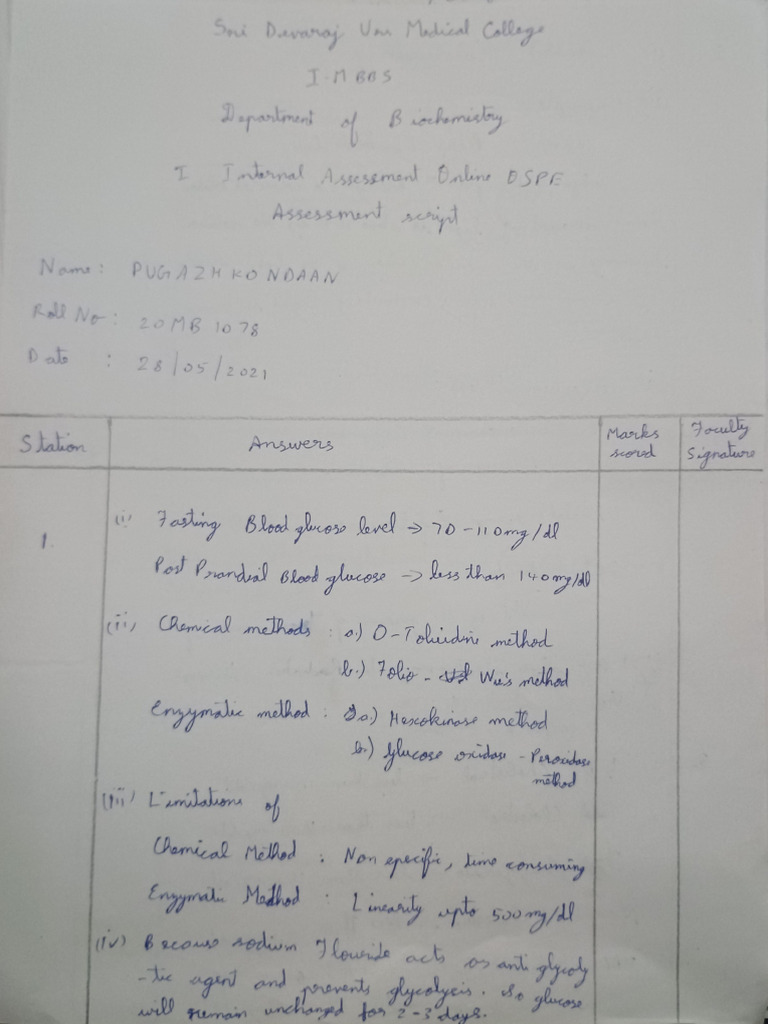 Sri Devaraj Urs Medical College
I-MBBS
Department of Biochemistry
I Internal Assessment Online OSPE
Assessment script
Name: PUGAZHKONDAAN
Roll No: 20MB1078
Date : 28/05/2021
Station Answers Marks scored Faculty Signature
1. (i) Fasting Blood glucose level → 70-110mg/dl
Post Prandial Blood glucose → less than 140mg/dl
(ii) Chemical methods: a.) O-Toluidine method
b.) Folio - Wu's method
Enzymatic method : a.) Hexokinase method
b.) Glucose oxidase - Peroxidase
method
(iii) Limitations of
Chemical Method : Non specific, time consuming
Enzymatic Method : Linearity upto 500mg/dl
(iv) Because sodium Flouride acts as anti glycoly
-tic agent and prevents glycolysis. So glucose
will remain unchanged for 2-3 days.